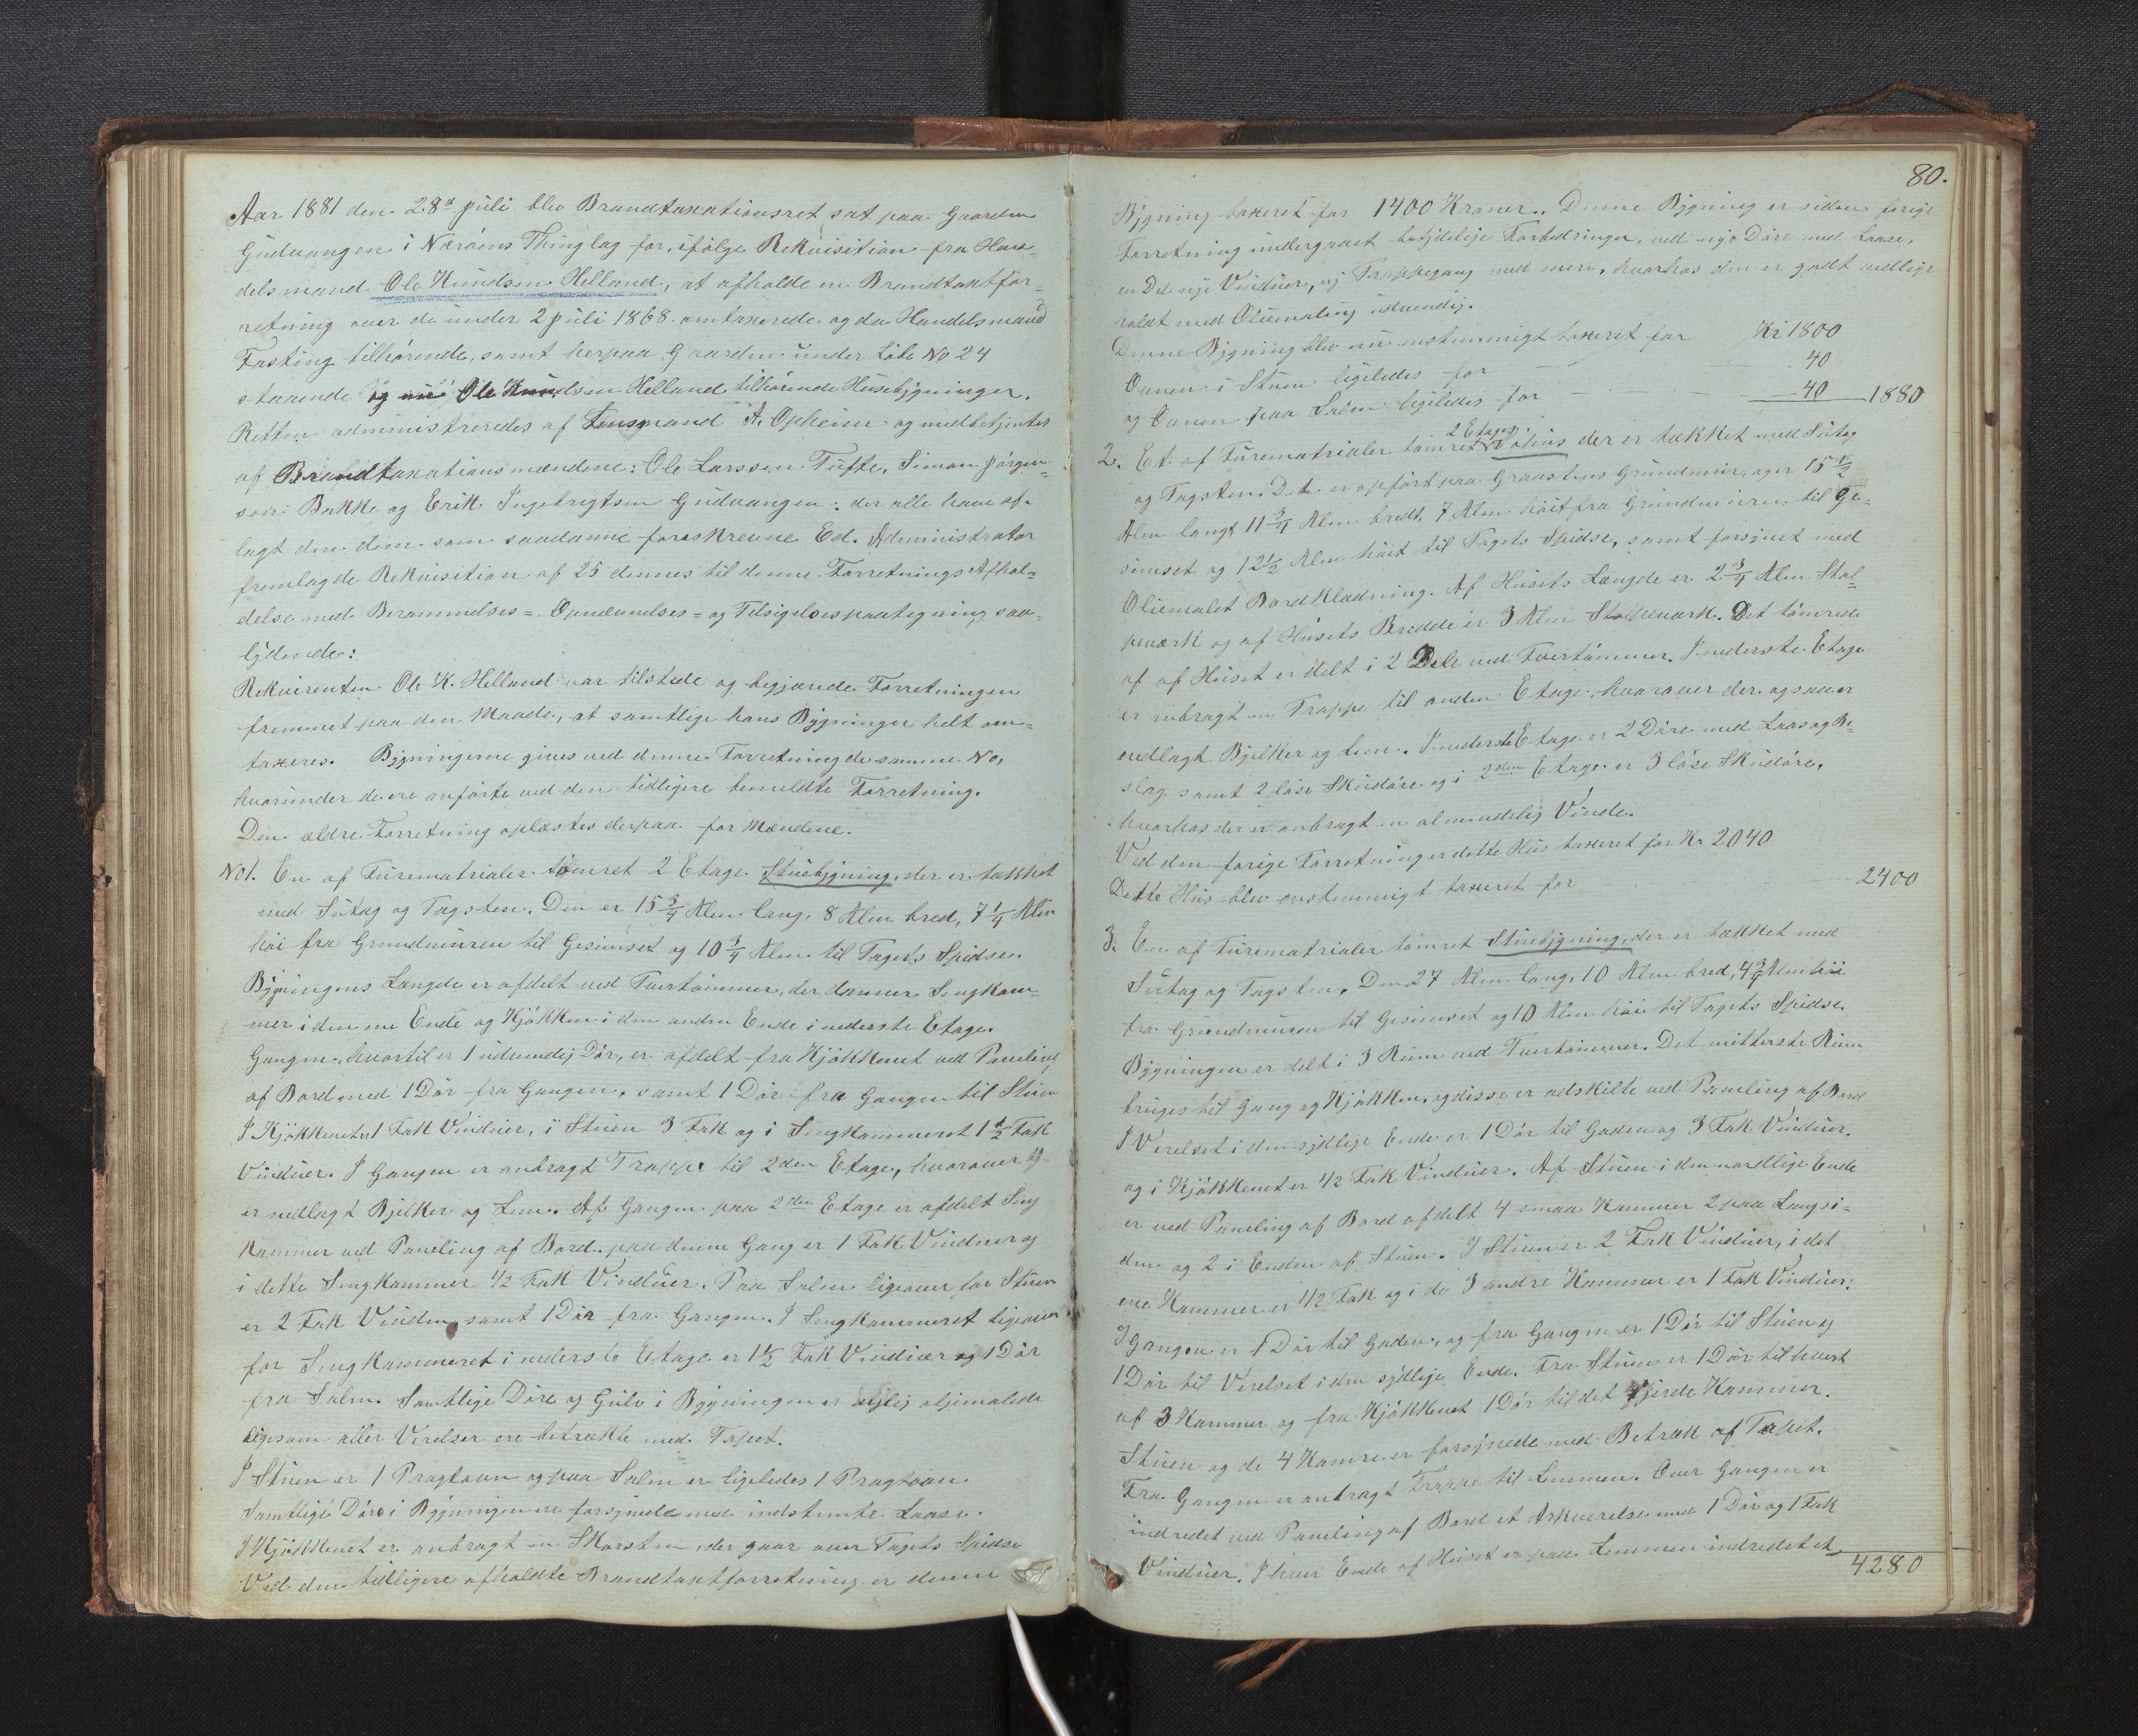 Aar 1881 den 28de Juli blev Brandtaxationsret sat paa Gaarden
Gudvangen i Nærøens Thinglag for, ifølge Rekvisition fra Han-
delsmand Ole Knudsen Helland, at afholde en Brandtaxtfor-
retning over de under 2 Juli 1868 omtaxerede og da Handelsmand
Fasting tilhørende, samt herpaa Gaarden under Løbe No 24
staaende og nu Ole Knudsen Helland tilhørende Husebygninger.
Retten administreredes af Lensmand A. Opheim og medbetjentes
af Brandtaxationsmændene: Ole Larssen Tufte, Simon Jørgen-
sen Bakke og Erik Ingebrigtsen Gudvangen: der alle have af-
lagt den dem som saadanne foreskrevne Ed. Administrator
fremlagde Rekvisition af 25 dennes til denne Forretnings Afhol-
delse med Berammelses= Opnævnelses= og Tilsigelsespaategning saa-
lydende:
Rekvirenten Ole K. Helland var tilstede og begjærede Forretningen
fremmet paa den Maade, at samtlige hans Bygninger helt om-
taxeres. Bygningerne gives ved denne Forretning de samme No,
hvorunder de ere anførte ved den tidligere bemeldte Forretning.
Den ældre Forretning oplæstes derpaa for Mændene.
No 1. En af Furematrialer tømret 2 Etage Stuebygning, der er tækket
med Sutag og Tagsten. Den er 15 3/4 Alen lang, 8 Alen bred, 7 1/4 Alen
høi fra Grundmuren til Gesimset og 10 3/4 Alen til Tagets Spidse.
Bygningens Længde er afdelt ved Tvertømmer, der danner Sengkam-
mer i den ene Ende og Kjøkken i den anden Ende i nederste Etage.
Gangen, hvortil er 1 udvendig Dør, er afdelt fra Kjøkkenet ved Paneling
af Bord med 1 Dør fra Gangen, samt 1 Dør fra Gangen til Stuen
I Kjøkkenet er 1 Fak Vinduer, i Stuen 3 Fak og i Sengkammeret 1 1/2 Fak
Vinduer. I Gangen er anbragt Trappe til 2den Etage, hvorover og
er nedlagt Bjelker og Lem. Af Gangen paa 2den Etage er afdelt Seng
Kammer ved Paneling af Bord. paa denne Gang er 1 Fak Vinduer og
i dette Sengkammer 1/2 Fak Vinduer. Paa Salen ligeover for Stuen
er 2 Fak Vinduer samt 1 Dør fra Gangen. I Sengkammeret ligeover
for Sengkammeret i nederste Etage er 1 1/2 Fak Vinduer og 1 Dør
fra Salen. Samtlige Døre og Gulv i Bygningen er oljemalede
ligesom aller Verelser ere betrækte med Tapet.
I Stuen er 1 Pragtovn og paa Salen er ligeledes 1 Pragtovn
Samtlige Døre i Bygningen ere forsynede med indstemte Laase.
I Kjøkkenet er anbragt en Skorsten, der gaar over Tagets Spidse
Ved den tidligere afholdte Brandtaxtforretning er denne
80.
Bygning taxeret for 1400 Kroner. Denne Bygning er siden forige
Forretning undergaaet betydelige Forbedringer, ved nye Døre med Laase,
en Del nye Vinduer, ny Trappegang med mere, hvorhos den er godt vedlige
holdt med Oliemaling udvendig.
Denne Bygning blev nu enstemmigt taxeret for Kr 1800
Ovnen i Stuen ligeledes for 40
og Ovnen paa Salen ligeledes for 40 1880
2 Etages
2. Et af Furematrialer tømret Vaahus der er tækket med Sutag
og Tagsten. Det er opført paa Graastens Grundmur, og er 15 1/2
Alen langt 11 3/4 Alen bredt, 7 Alen høit fra Grundmuren til Ge-
simset og 12 1/2 Alen høit til Tagets Spidse, samt forsynet med
Oliemalet Bordklædning. Af Husets Længde er 2 3/4 Alen Stol-
peværk og af Husets Bredde er 3 Alen Stolpeværk. Det tømrede
af af Huset er delt i 2 Dele ved Tvertømmer. I nederste Etage
er anbragt en Trappe til anden Etage, hvorover der ogsaa er
nedlagt Bjelker og Lem. I nederste Etage er 2 Døre med Laas og Be-
slag samt 2 løse Skudøre og i 2den Etage er 3 løse Skudøre,
hvorhos der er anbragt en almindelig Vinde.
Ved den forige Forretning er dette Hus taxeret for Kr 2040
Dette Hus blev enstemmigt taxeret for 2400
3. En af Furematrialer tømret Stuebygning, der er tækket med
Sutag og Tagsten. Den 27 Alen lang, 10 Alen bred, 4 3/4 Alen høi
fra Grundmuren til Gesimset og 10 Alen høi til Tagets Spidse.
Bygningen er delt i 3 Rum ved Tvertømmer. Det mitterste Rum
bruges til Gang og Kjøkken, og disse er adskilte ved Paneling af Bord
I Verelset i den sydlige Ende er 1 Dør til Gaden og 3 Fak Vinduer.
og i Kjøkkenet er 1/2 Fak Vinduer. Af Stuen i den nordlige Ende
er ved Paneling af Bord afdelt 4 smaa Kammer 2 paa Langsi-
den og 2 i Enden af Stuen. I Stuen er 2 Fak Vinduer, i det
ene Kammer er 1/2 Fak og i de 3 andre Kammer er 1 Fak Vinduer:
I Gangen er 1 Dør til Gaden, og fra Gangen er 1 Dør til Stuen og
1 Dør til Verelset i den sydlige Ende. Fra Stuen er 1 Dør til hvert
af 3 Kammer og fra Kjøkkenet 1 Dør til det fjerde Kammer.
Stuen og de 4 Kamre er forsynede med Betræk af Tapet.
Fra Gangen er anbragt Trappe til Lemmen. Over Gangen er
indredet ved Paneling af Bord et Arkverelse med 1 Dør og 1 Fak
Vinduer. I hver Ende af Huset er paa Lemmen indredet et
4280